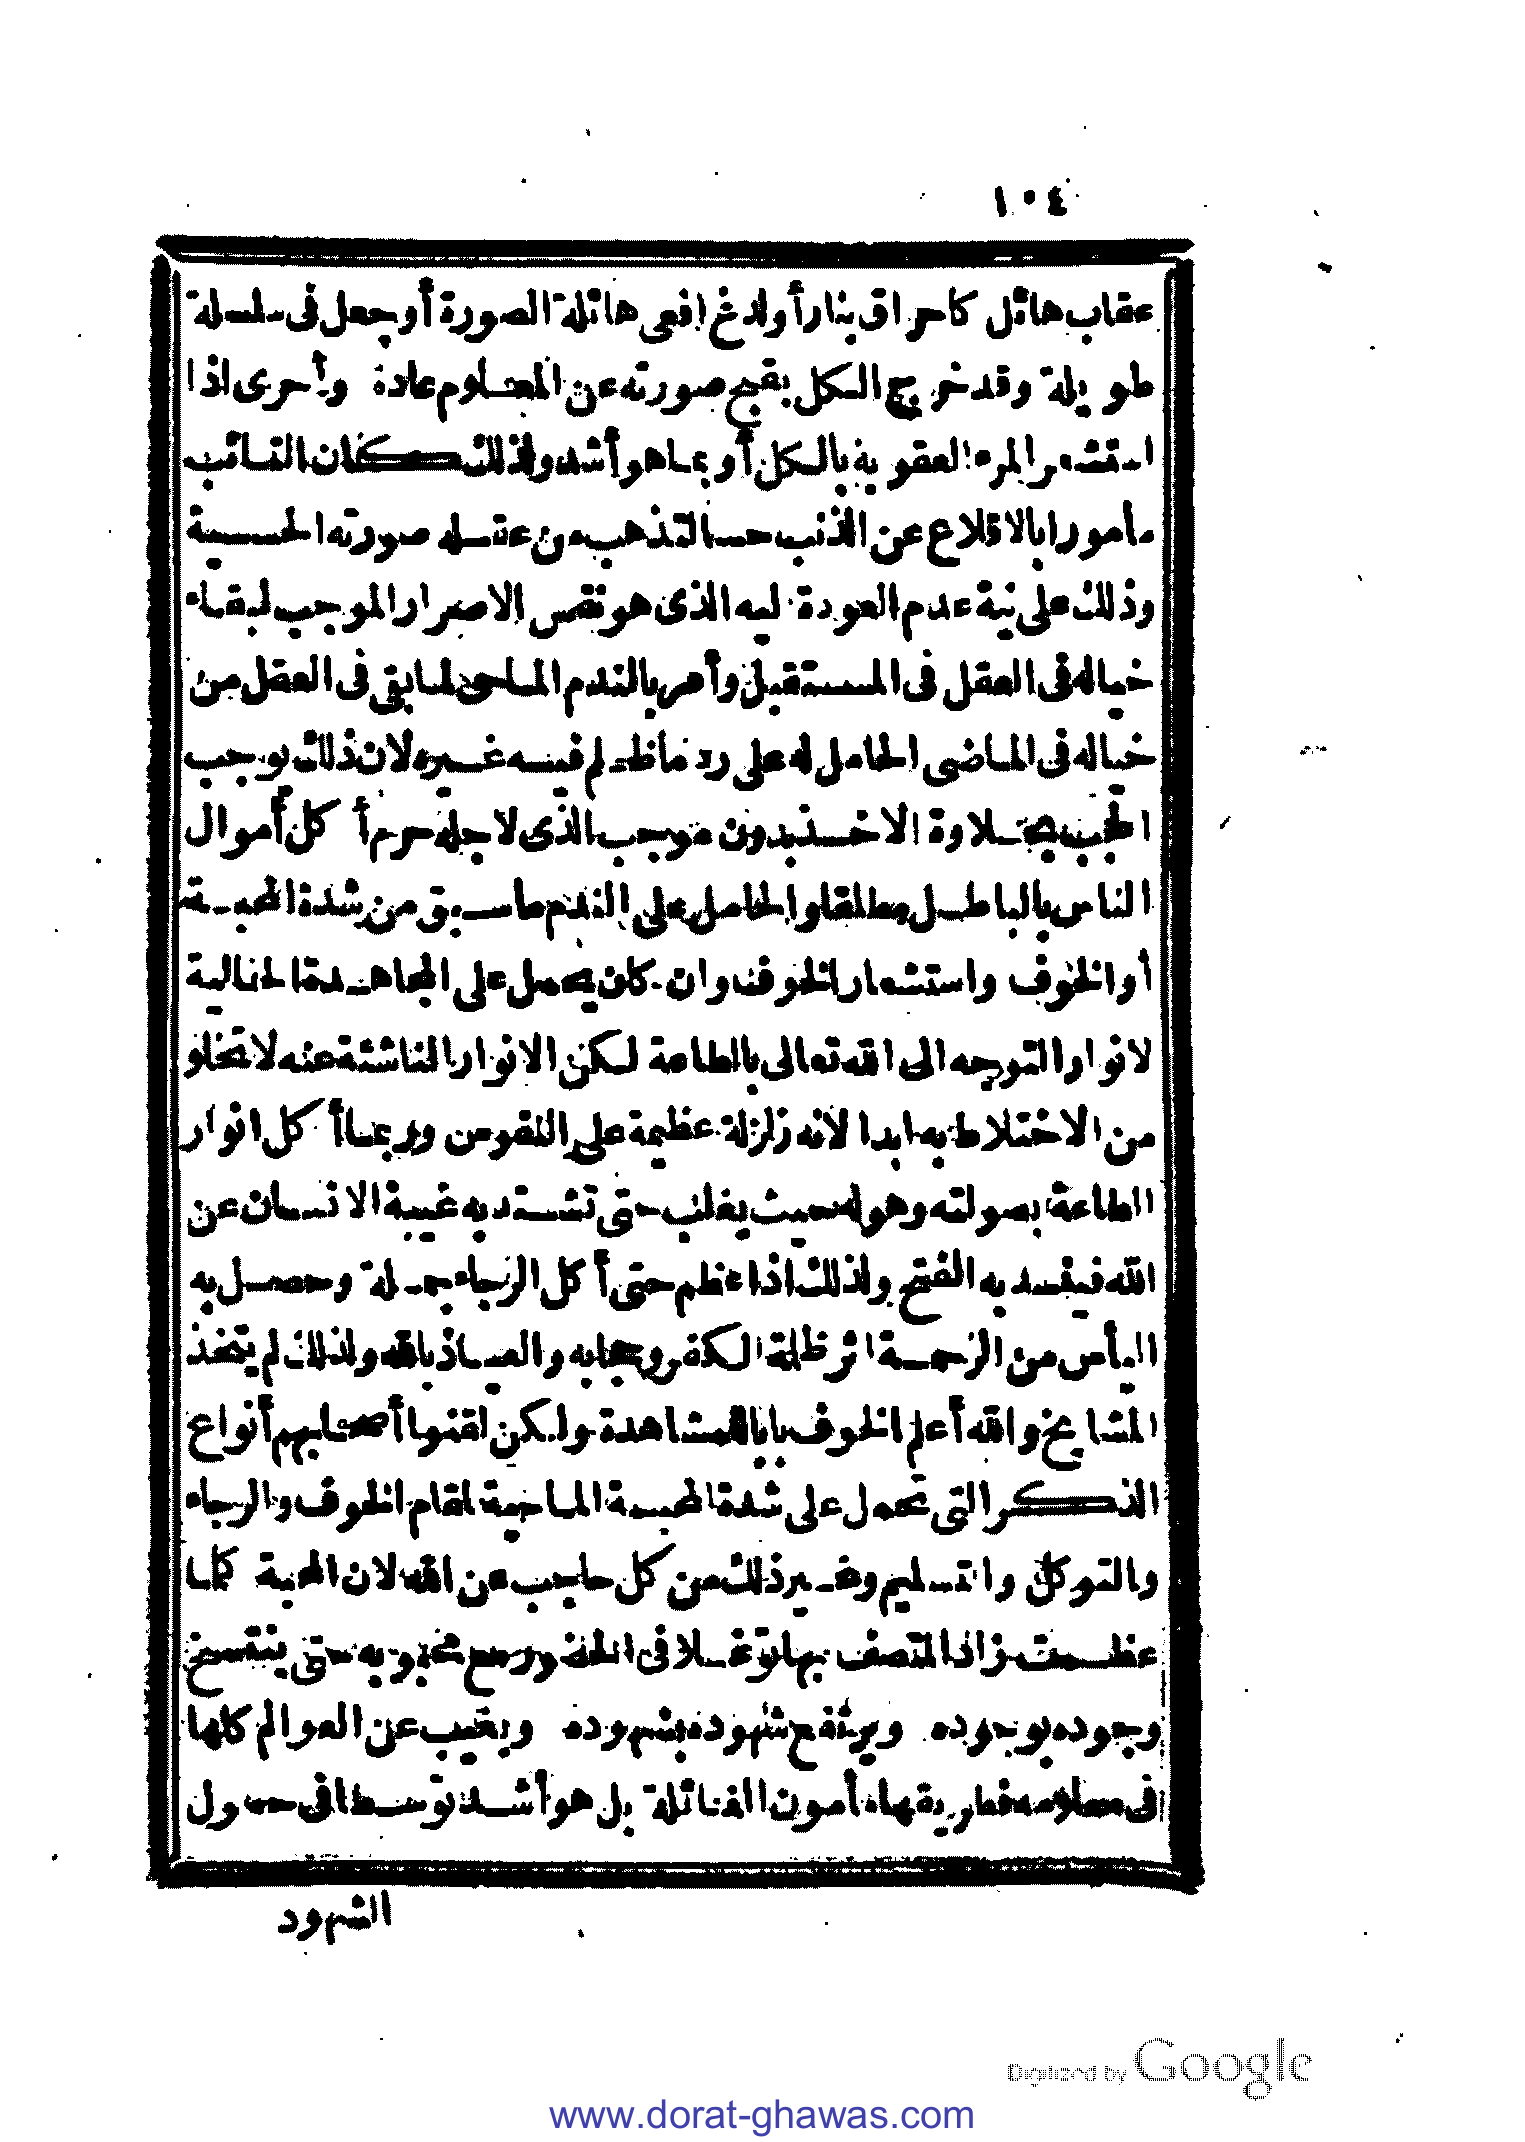 ١٠٤
عقاب هائل كاحراق بنار أو لدغ افعى هائلة الصورة أو جعل فى سلسلة
طويلة وقد خرج الكل بقبح صورته عن المعلوم عادة وأحرى اذا
استشعر المرء العقوبة بالكل أو بما هو أشد ولذلك كان التائب
مأمورا بالاقلاع عن الذنب حسا لتذهب من عقله صورته الحسية
وذلك على نية عدم العودة اليه الذى هو نقس الاصرار الموجب لبقاء
خياله فى العقل فى المستقبل وأمر بالندم الماحى لما بقى فى العقل من
خياله فى الماضى الحامل له على رد ما ظلم فيه غيره لان ذلك يوجب
الحجب بحلاوة الاخذ بدون موجب الذى لاجله حرم أكل أموال
الناس بالباطل مطلقا والحامل على الندم ما سبق من شدة المحبة
أو الخوف واستشعار الخوف وان كان يحمل على المجاهدة الجالية
لانوار التوجه الى الله تعالى بالطاعة لكن الانوار الناشئة عنه لا تخلو
من الاختلاط به ابدا لانه زلزلة عظيمة على النفوس وربما أكل انوار
الطاعة بصولته وهوله بحيث يغلب حتى تشتد به غيبة الانسان عن
الله فيفسد به الفتح ولذلك اذا عظم حتى أكل الرجاء جملة وحصل به
اليأس من الرحمة اثر ظلمة الكفر وحجابه والعياذ بالله ولذلك لم يتخذ
المشايخ والله أعلم الخوف بابا للمشاهدة ولكن لقنوا أصحابهم أنواع
الذكر التى تحمل على شدة المحبة الماحية لمقام الخوف والرجاء
والتوكل والتسليم وغير ذلك من كل حاجب عن الله لان المحبة كلما
عظمت زاد المتصف بها توغلا فى الحق ورسخ محبوبه حتى ينتسخ
وجوده بوجوده ويرتفع شهوده بشهوده ويغيب عن العوالم كلها
فى فطريقها مأمون الغائلة بل هو أشد توسطا فى حصول
الشهود
Digitized by Google
www.dorat-ghawas.com